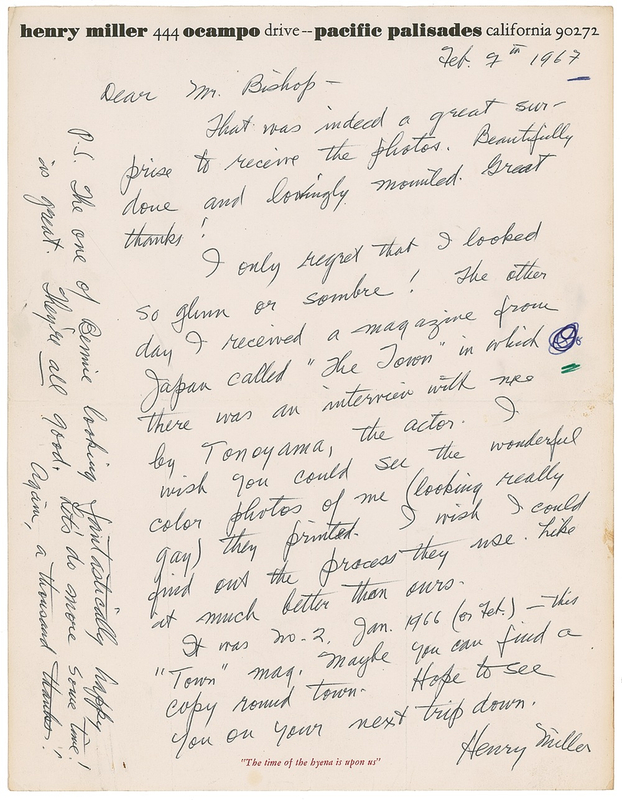 henry miller 444 ocampo drive -- pacific palisades california 90272
Feb. 9th 1967
Dear Mr. Bishop —
That was indeed a great sur-
prise to receive the photos. Beautifully
done and lovingly mounted. Great
thanks!
I only regret that I looked
so glum or sombre! The other
day I received a magazine from
Japan called "The Town" in which
there was an interview with me
by Tonoyama, the actor. I
wish you could see the wonderful
color photos of me (looking really
gay) they printed. I wish I could
find out the process they use. Like
it much better than ours.
It was no-2, Jan. 1966 (or Feb.) — this
"Town" mag. Maybe you can find a
copy round town. Hope to see
you on your next trip down.
Henry Miller
P.S. The one of Bennie looking fantastically happy
is great. They're all good. Let's do more some time!
Again, a thousand thanks!
"The time of the hyena is upon us"